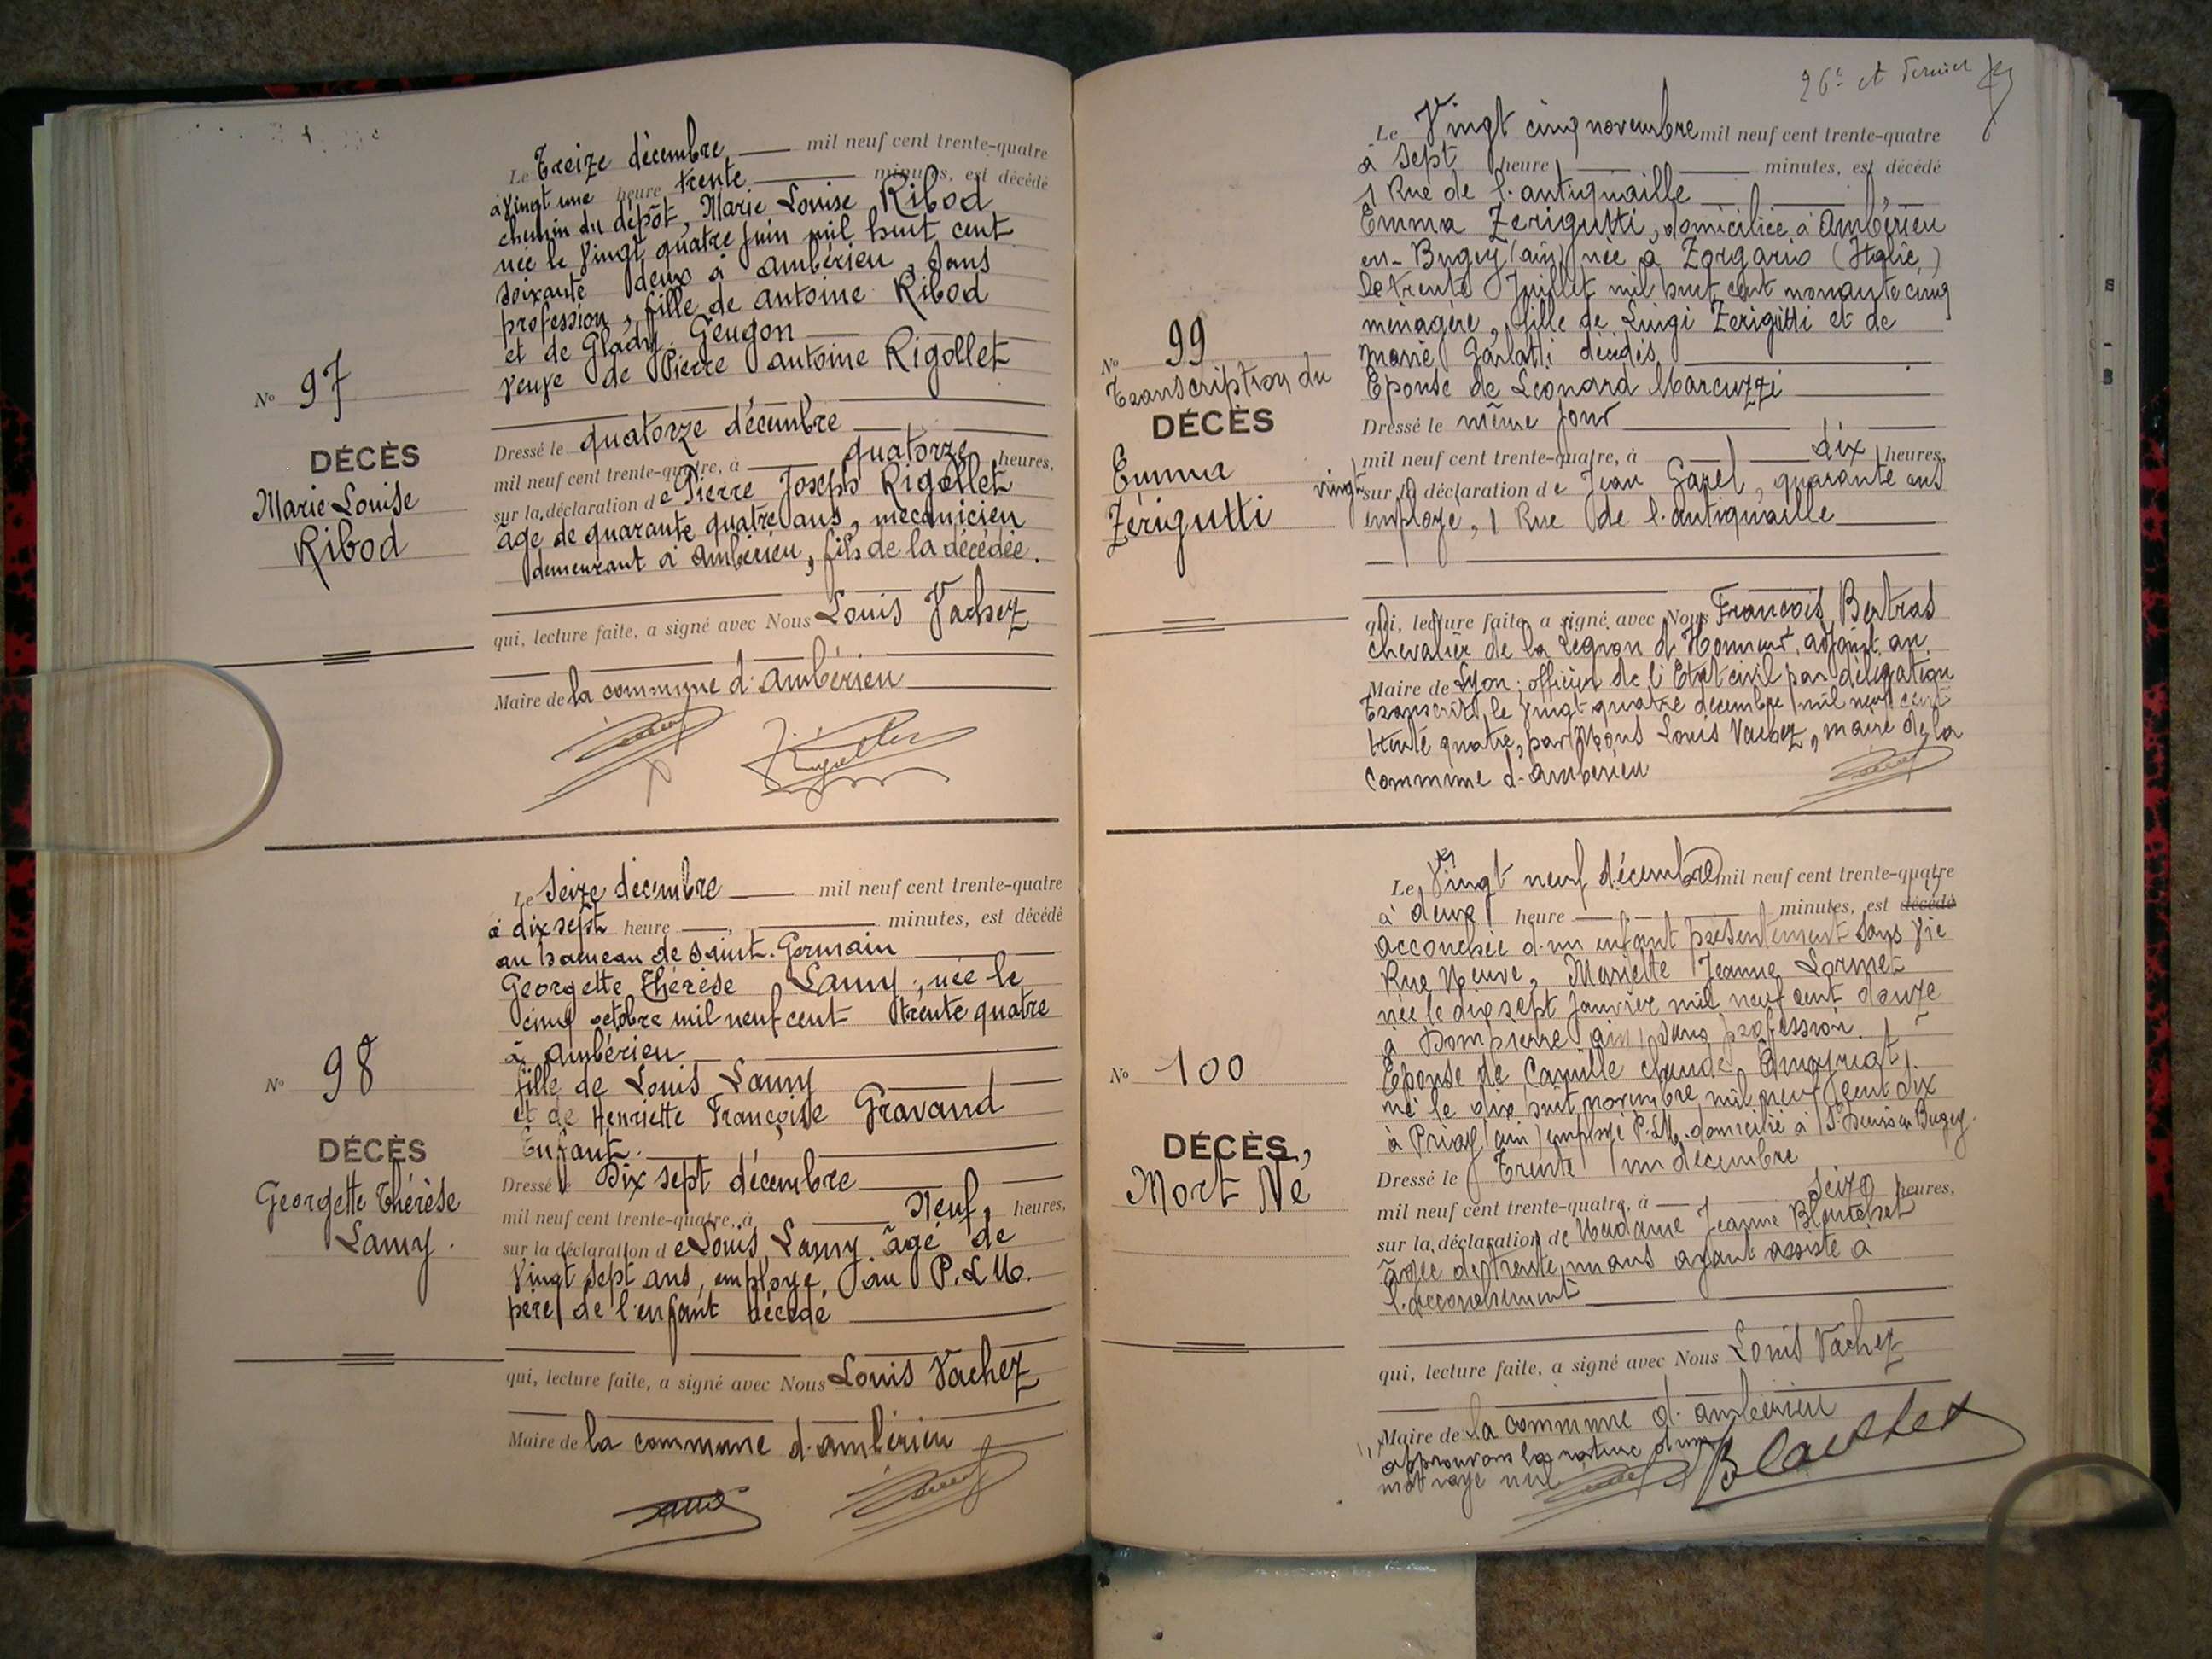 N° 97
DÉCÈS
Marie Louise
Ribod
Le Treize décembre mil neuf cent trente-quatre
à Vingt une heure trente minutes, est décédé
chemin du dépôt, Marie Louise Ribod
née le Vingt quatre Juin mil huit cent
soixante deux à Ambérieu, sans
profession, fille de Antoine Ribod
et de Geugon
veuve de Pierre Antoine Rigollet
Dressé le quatorze décembre
mil neuf cent trente-quatre, à quatorze heures,
sur la déclaration de Pierre Joseph Rigollet
âgé de quarante quatre ans, mécanicien
demeurant à Ambérieu, fils de la décédée.
qui, lecture faite, a signé avec Nous Louis Vachez
Maire de la commune d'Ambérieu
N° 98
DÉCÈS
Georgette Thérèse
Lamy.
Le Seize décembre mil neuf cent trente-quatre
à dix sept heure minutes, est décédé
au hameau de Saint-Germain
Georgette Thérèse Lamy, née le
cinq octobre mil neuf cent trente quatre
à Ambérieu
fille de Louis Lamy
et de Henriette Françoise Gravand
Enfant.
Dressé le Dix sept décembre
mil neuf cent trente-quatre, à Neuf, heures,
sur la déclaration de Louis Lamy âgé de
Vingt sept ans, employé au P.L.M.
père de l'enfant décédé
qui, lecture faite, a signé avec Nous Louis Vachez
Maire de la commune d'Ambérieu
26e et Dernier
N° 99
Transcription du
DÉCÈS
Emma
Zerigutti
Le Vingt cinq novembre mil neuf cent trente-quatre
à sept heure minutes, est décédé
1 Rue de l'antiquaille
Emma Zerigutti, domiciliée à Ambérieu
en-Bugey (ain) née à Zorgario (Italie)
le trente Juillet mil huit cent nonante cinq
ménagère, fille de Luigi Zerigutti et de
Marie Garlatti décédés
Epouse de Léonard Marcuzzi
Dressé le même jour
mil neuf cent trente-quatre, à dix heures,
vingt sur la déclaration de Jean Gazel, quarante ans
employé, 1 Rue de l'antiquaille
qui, lecture faite, a signé avec Nous François Bertras
chevalier de la Légion d'Honneur, adjoint au
Maire de Lyon, officier de l'Etat civil par délégation
Transcrit le vingt quatre décembre mil neuf cent
trente quatre, par Nous Louis Vachez, maire de la
commune d'Ambérieu
N° 100
DÉCÈS,
Mort Né
Le Vingt neuf décembre mil neuf cent trente-quatre
à deux heure minutes, est décédé
accouchée d'un enfant présentement sans vie
Rue Neuve, Mariette Jeanne Lormet
née le dix sept Janvier mil neuf cent douze
à Dompierre (ain) sans profession.
Epouse de Camille claude
né le dix huit novembre mil neuf cent dix
à Priay (ain) employé P.L.M. domicilié à St Denis en Bugey.
Dressé le Trente un décembre
mil neuf cent trente-quatre, à Seize heures,
sur la déclaration de Madame Jeanne Blanchet
âgée de trente un ans ayant assisté à
l'accouchement
qui, lecture faite, a signé avec Nous Louis Vachez
Maire de La commune d'Ambérieu
approuvons la rature d'un
mot rayé nul
Blanchet